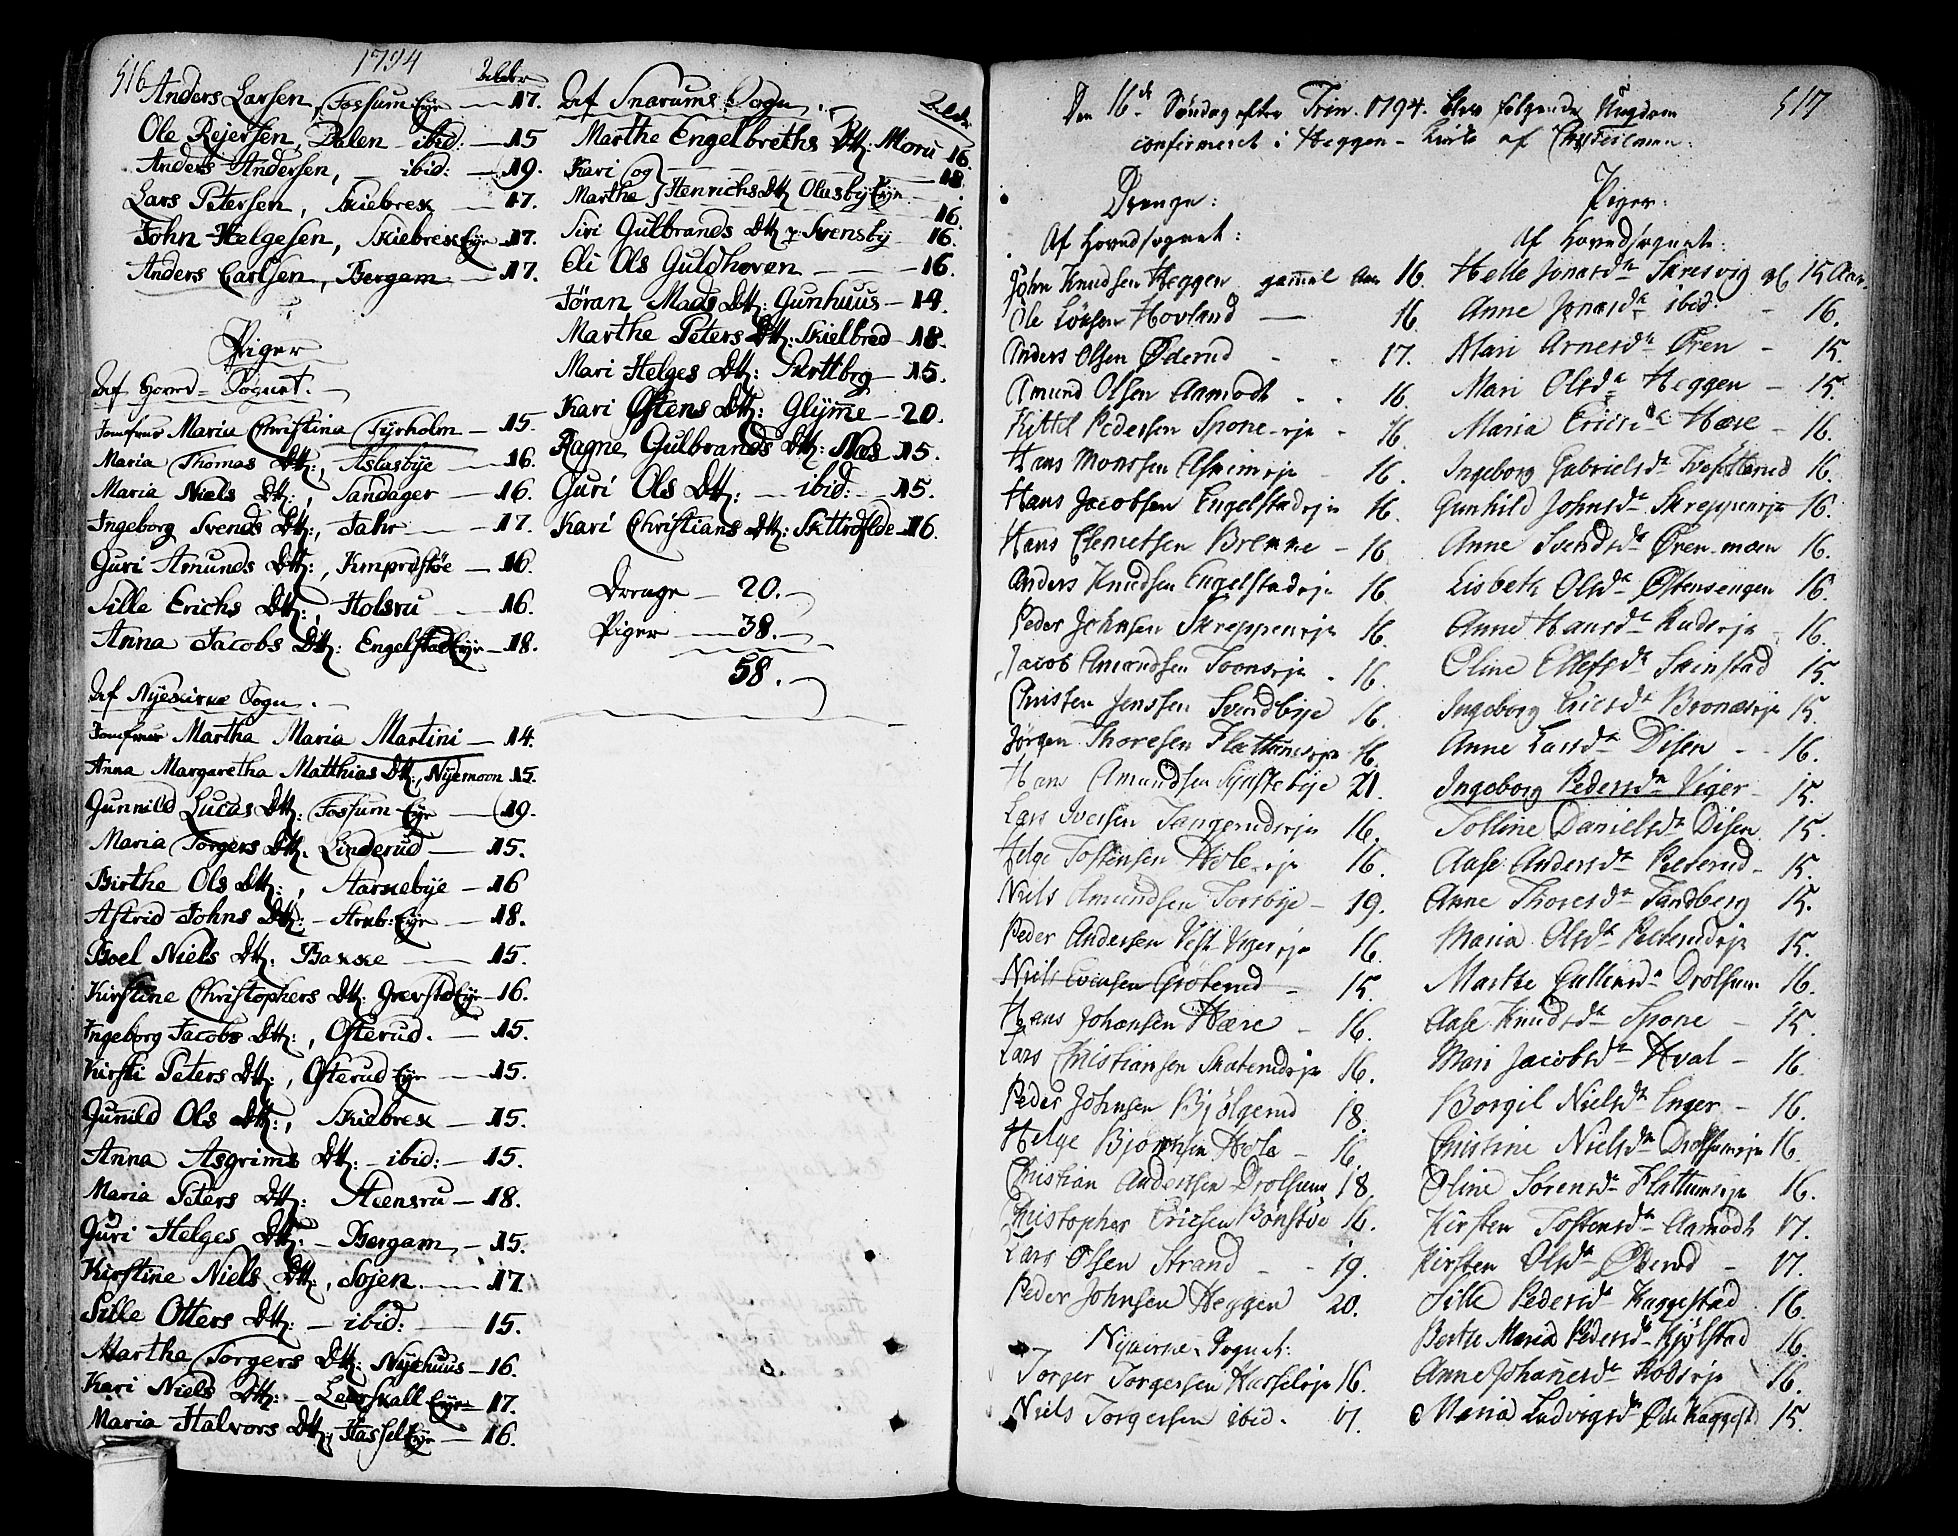 516
1794
Alder
Anders Larsen, Fossum Eye — 17.
Ole Rejersen, Dalen — ibid: — 15
Anders Andersen, — ibid: — 19.
Lars Petersen, Skiebrek — 17.
John Helgesen, Skiebrek Eye — 17.
Anders Carlsen, Bergam — 17.
Piger
Af Hoved-Sognet.
Jomfrue Maria Christina Fyrholm — 15.
Maria Thomas Dtt:, Aslasbye — 16.
Maria Niels Dtt:, Sandager — 16.
Ingeborg Svends Dtt:, Jahr — 17.
Guri Amunds Dtt:, — 16.
Sille Erichs Dtt:, Holsru — 16.
Anna Jacobs Dtt: Engelstad Eye — 18.
Af Nyekirke Sogn.
Jomfrue Martha Maria Martini — 14.
Anna Margaretha Matthias Dtt:, Nyemoen 15.
Gunnild Lucas Dtt: Fossum Eye — 19.
Maria Torgers Dtt. Linderud — 15.
Birthe Ols Dtt:, Starkebye — 16
Astrid Johns Dtt: — Eye — 18.
Boel Niels Dtt: Bakke — 15.
Kirstine Christophers Dtt: Grevstad Eye — 16.
Ingeborg Jacobs Dtt:, Osterud. — 15.
Kirsti Peters Dtt:, Osterud Eye — 15.
Gunild Ols Dtt:, Skiebrek — 15.
Anna Asgrims Dtt: — ibid: — 15.
Maria Peters Dtt: Steensru — 18.
Guri Helges Dtt: — Bergam — 15.
Kirstine Niels Dtt:, Sojen — 17.
Sille Otters Dtt: — ibid: 15.
Marthe Torgers Dtt: Nyehuus — 16.
Kari Niels Dtt: — Leerskall Eye — 17.
Maria Halvors Dtt; Hassel Eye — 16.
Af Snarums Sogn.
Alder
Marthe Engelbreths Dtt: Moru 16.
Kari og — 18
Marthe Henrichs Dtt; Olasby Eye — 16.
Siri Gulbrands Dtt; Svensby — 16.
Eli Ols Guldhoven — 16.
Jöran Mads Dtt: Gunhuus — 19.
Marthe Peters Dtt: Skielbred — 18.
Mari Helges Dtt: — 15.
Kari Østens Dtt: Glymme — 20.
Ragne Gulbrands Dtt: Næs 15.
Guri Ols Dtt: — ibid: — 15.
Kari Christians Dtt: — 16.
Drenge — 20.
Piger — 38.
58.
517
Den 16de Søndag efter Trin. 1794. blev følgende Ungdom
confirmeret i Heggen-Kirke af
Drenge:
Af Hovedsognet:
John Knudsen Heggen gammel Aar 16.
Ole Hovland — 16.
Anders Olsen Øderud - - 17.
Amund Olsen Aamodt - - 16.
Kittil Pedersen Spone-eje - 16.
Hans Monssen Askimeje - 16.
Hans Jacobsen Engelstadeje 16.
Hans Brekke - 16.
Anders Knudsen Engelstadeje 16.
Peder Johnsen Skreppeneje 16.
Jacob Amundsen - 16.
Christen Jenssen Svendbye 16.
Jørgen Thoresen Flattumseje 16.
Hans Amundsen 21.
Lars Iversen Tangerudseje 16.
Helge Tostensen Hole-eje 16.
Niels Amundsen Torsbye - 19.
Peder Andersen Vest Vigereje 16.
Niels Evensen Grøterud - 15.
Hans Johansen Hære - 16.
Lars Christiansen Skaterudeje 16.
Peder Johnsen Bjølgerud 18.
Helge Bjørnsen Hole - 16.
Christian Anderssen Drolsum 18.
Christopher Ericsen Bønstøe 16.
Lars Olsen Strand - - 19.
Peder Johnsen Heggen 20.
Nykirke-Sognet:
Torger Torgersen Hasseleje 16.
Niels Torgersen ibid. 17.
Piger:
Af Hovedsognet:
Helle Jonasdr Skresvig gl 15 Aar.
Anne Jonasdr ibid. - 16.
Mari Arnesdr Øren - 15.
Mari Olsdr Heggen - 15.
Maria Ericsdr Hære - 16.
Ingeborg Gabrielsdr 16.
Gunhild Johnsdr Skreppeneje 16.
Anne Svendsdr Øren-moen 16.
Lisbeth Olsdr Østensengen 16.
Anne Hansdr Rudseje - 16.
Oline Ellefsdr Skinstad 15.
Ingeborg Ericsdr 15.
Anne Larsdr Disen - - 16.
Ingeborg Pedersdr Viger - 15.
Tolline Danielsdr Disen 15.
Aase Andersdr - 15.
Anne Thoresdr Sandberg 15.
Maria Olsdr 15.
Marthe Drolsum 16.
Aase Knudsdr Spone - 15.
Mari Jacobsdr Hval - 16.
Borgil Nielsdr Enger - 16.
Christine Nielsdr Drolsumseje 16.
Oline Sørensdr Flattumseje 16.
Kirsten Tostensdr Aamodt 17.
Kirsten Olsdr Øderud - 17.
Sille Pedersdr Kaggestad 16.
Berthe Maria Pedersdr Kjølstad 16.
Anne Johannesdr 16.
Maria Ludvigsdr 15.